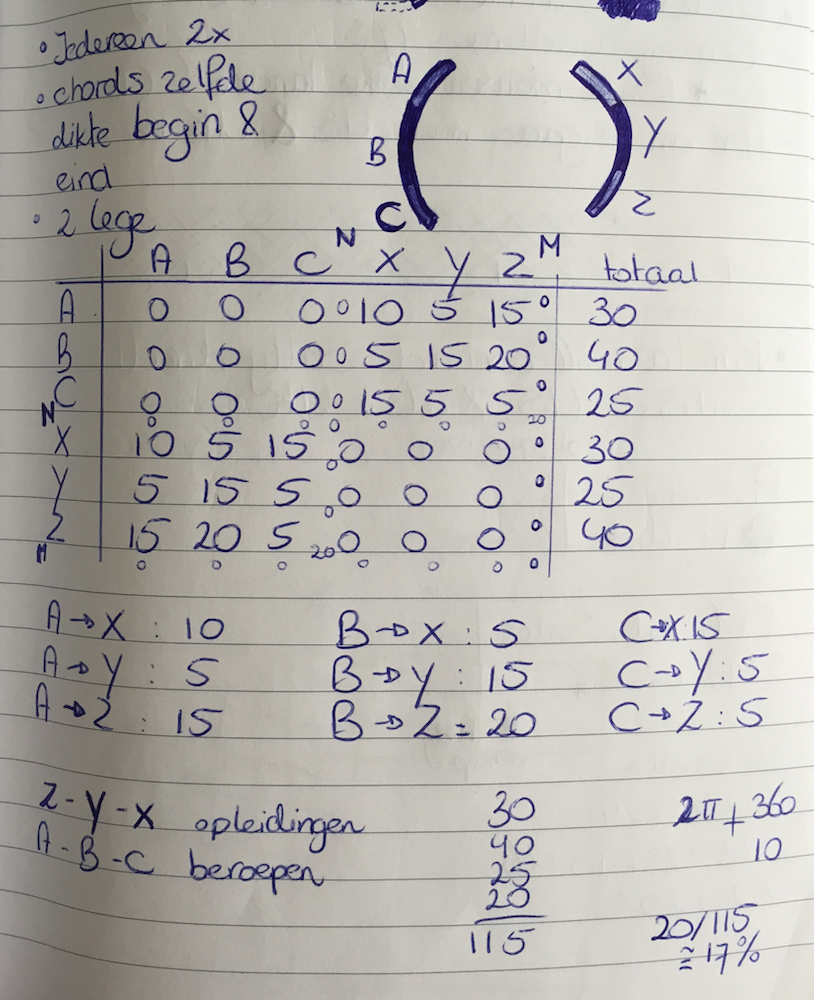 • Iedereen 2x
• chords zelfde
dikte begin &
eind
• 2 lege
A
B
C
X
Y
Z
A B C N X Y Z M totaal
A 0 0 0 0 10 5 15 0 30
B 0 0 0 0 5 15 20 0 40
C 0 0 0 0 15 5 5 0 25
N 0 0 0 0 0 0 0 20
X 10 5 15 0 0 0 0 0 30
Y 5 15 5 0 0 0 0 0 25
Z 15 20 5 0 0 0 0 0 40
M 0 0 0 20 0 0 0 0
A → X : 10 B → X : 5 C → X: 15
A → Y : 5 B → Y : 15 C → Y : 5
A → Z : 15 B → Z = 20 C → Z : 5
Z - Y - X opleidingen
A - B - C beroepen
30
40
25
20
115
2π + 360
10
20/115
≅ 17%